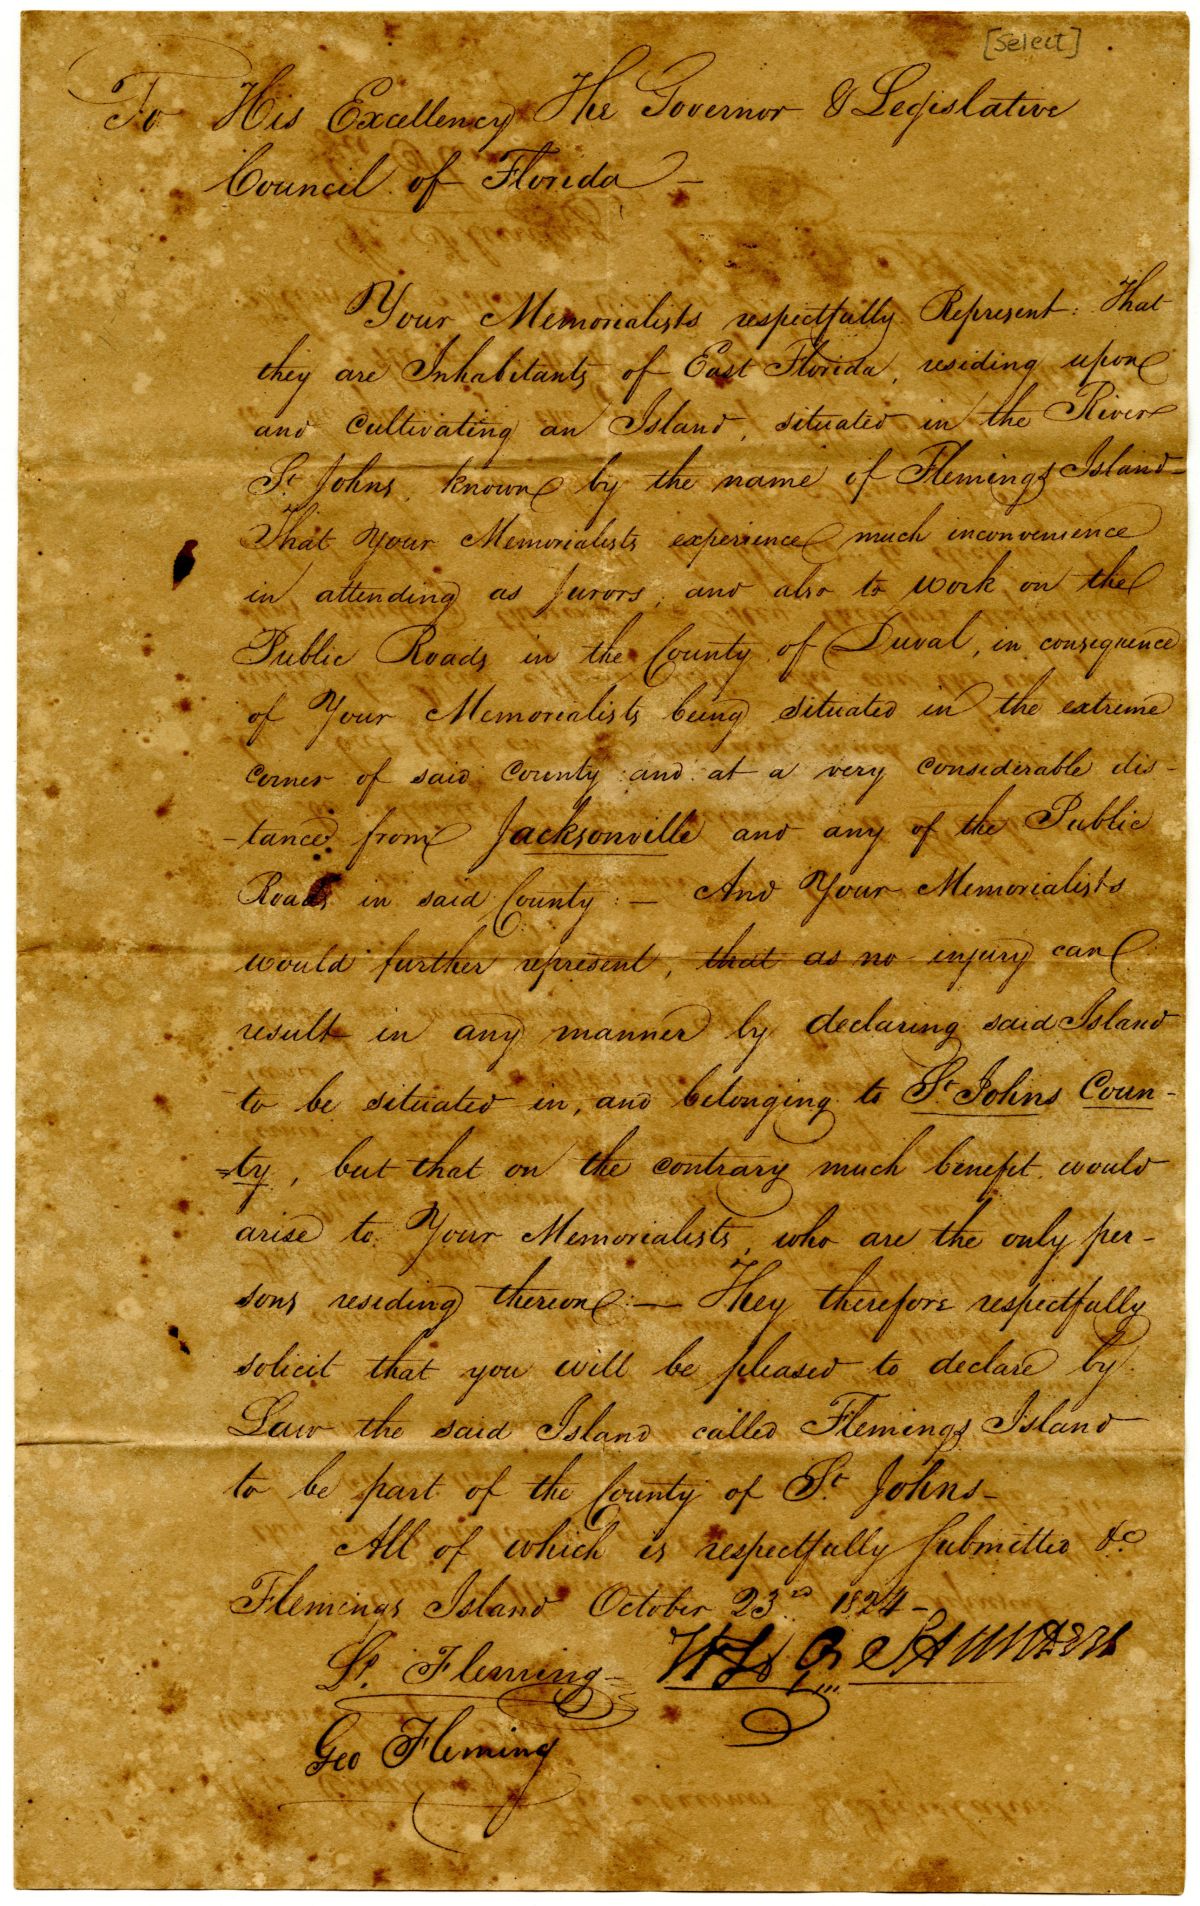 [Select]
To His Excellency The Governor & Legislative
Council of Florida —
Your Memorialists respectfully Represent: That
they are Inhabitants of East Florida, residing upon
and cultivating an Island, situated in the River
St. Johns, known by the name of Flemings Island—
That Your Memorialists experience much inconvenience
in attending as Jurors, and also to work on the
Public Roads in the County of Duval, in consequence
of Your Memorialists being situated in the extreme
corner of said County and at a very considerable dis-
-tance from Jacksonville and any of the Public
Roads in said County: — And Your Memorialists
would further represent, that as no injury can
result in any manner by declaring said Island
to be situated in, and belonging to St. Johns Coun-
=ty, but that on the contrary much benefit would
arise to Your Memorialists, who are the only per-
sons residing thereon: — They therefore respectfully
solicit that you will be pleased to declare by
Law the said Island called Flemings Island
to be part of the County of St. Johns—
All of which is respectfully submitted &c
Flemings Island October 23rd 1824—
Fleming— Saunders
Geo Fleming